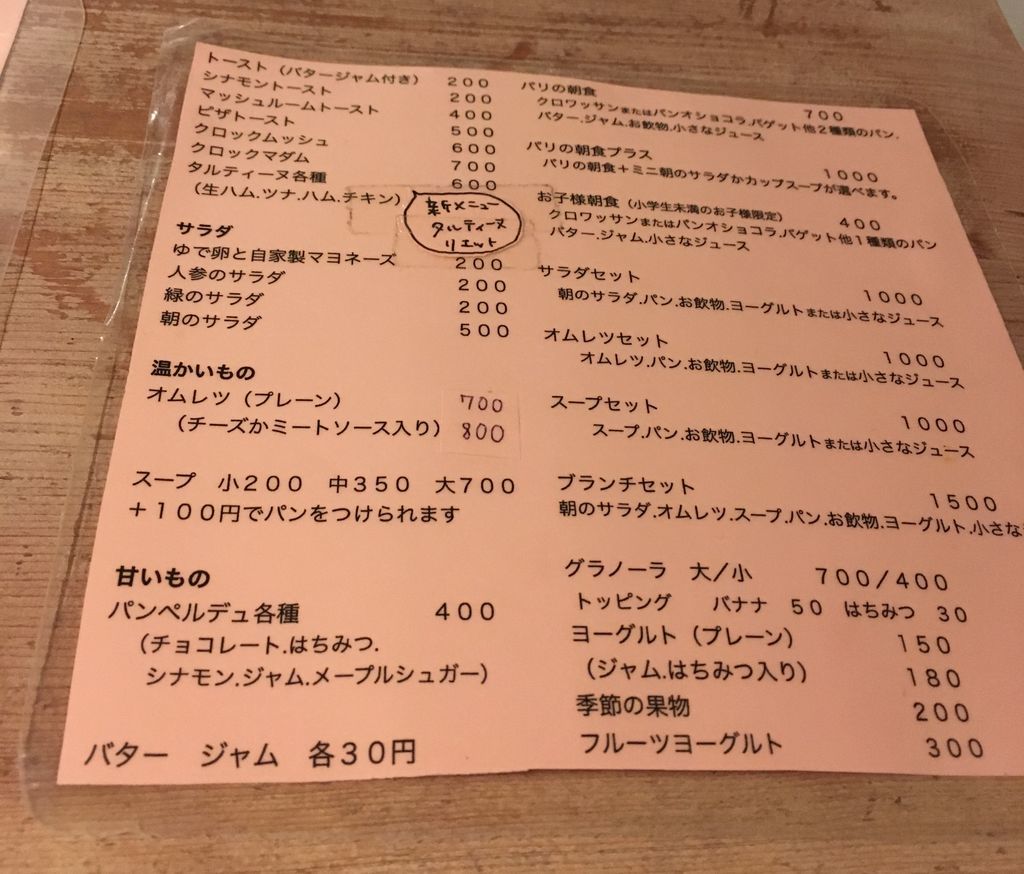 トースト（バタージャム付き） ２００
シナモントースト ２００
マッシュルームトースト ４００
ピザトースト ５００
クロックムッシュ ６００
クロックマダム ７００
タルティーヌ各種 ６００
（生ハム.ツナ.ハム.チキン）
新メニュー
タルティーヌ
リエット
サラダ
ゆで卵と自家製マヨネーズ ２００
人参のサラダ ２００
緑のサラダ ２００
朝のサラダ ５００
温かいもの
オムレツ（プレーン） 700
（チーズかミートソース入り） 800
スープ 小２００ 中３５０ 大７００
＋１００円でパンをつけられます
甘いもの
パンペルデュ各種 ４００
（チョコレート.はちみつ.
シナモン.ジャム.メープルシュガー）
バター ジャム 各３０円
パリの朝食 ７００
クロワッサンまたはパンオショコラ.バゲット他２種類のパン.
バター.ジャム.お飲物.小さなジュース
パリの朝食プラス １０００
パリの朝食＋ミニ朝のサラダかカップスープが選べます。
お子様朝食（小学生未満のお子様限定） ４００
クロワッサンまたはパンオショコラ.バゲット他１種類のパン
バター.ジャム.小さなジュース
サラダセット １０００
朝のサラダ.パン.お飲物.ヨーグルトまたは小さなジュース
オムレツセット １０００
オムレツ.パン.お飲物.ヨーグルトまたは小さなジュース
スープセット １０００
スープ.パン.お飲物.ヨーグルトまたは小さなジュース
ブランチセット １５００
朝のサラダ.オムレツ.スープ.パン.お飲物.ヨーグルト.小さな
グラノーラ 大／小 ７００/４００
トッピング バナナ ５０ はちみつ ３０
ヨーグルト（プレーン） １５０
（ジャム.はちみつ入り） １８０
季節の果物 ２００
フルーツヨーグルト ３００